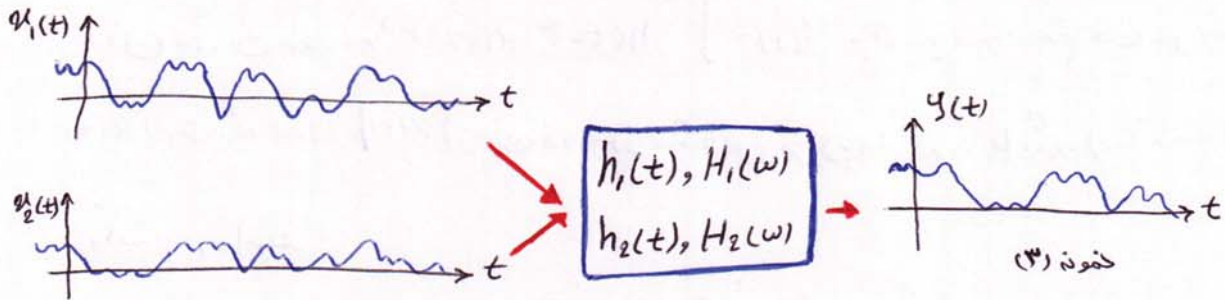 x₁(t)
t
x₂(t)
t
h₁(t), H₁(ω)
h₂(t), H₂(ω)
y(t)
t
نمونه (۳)